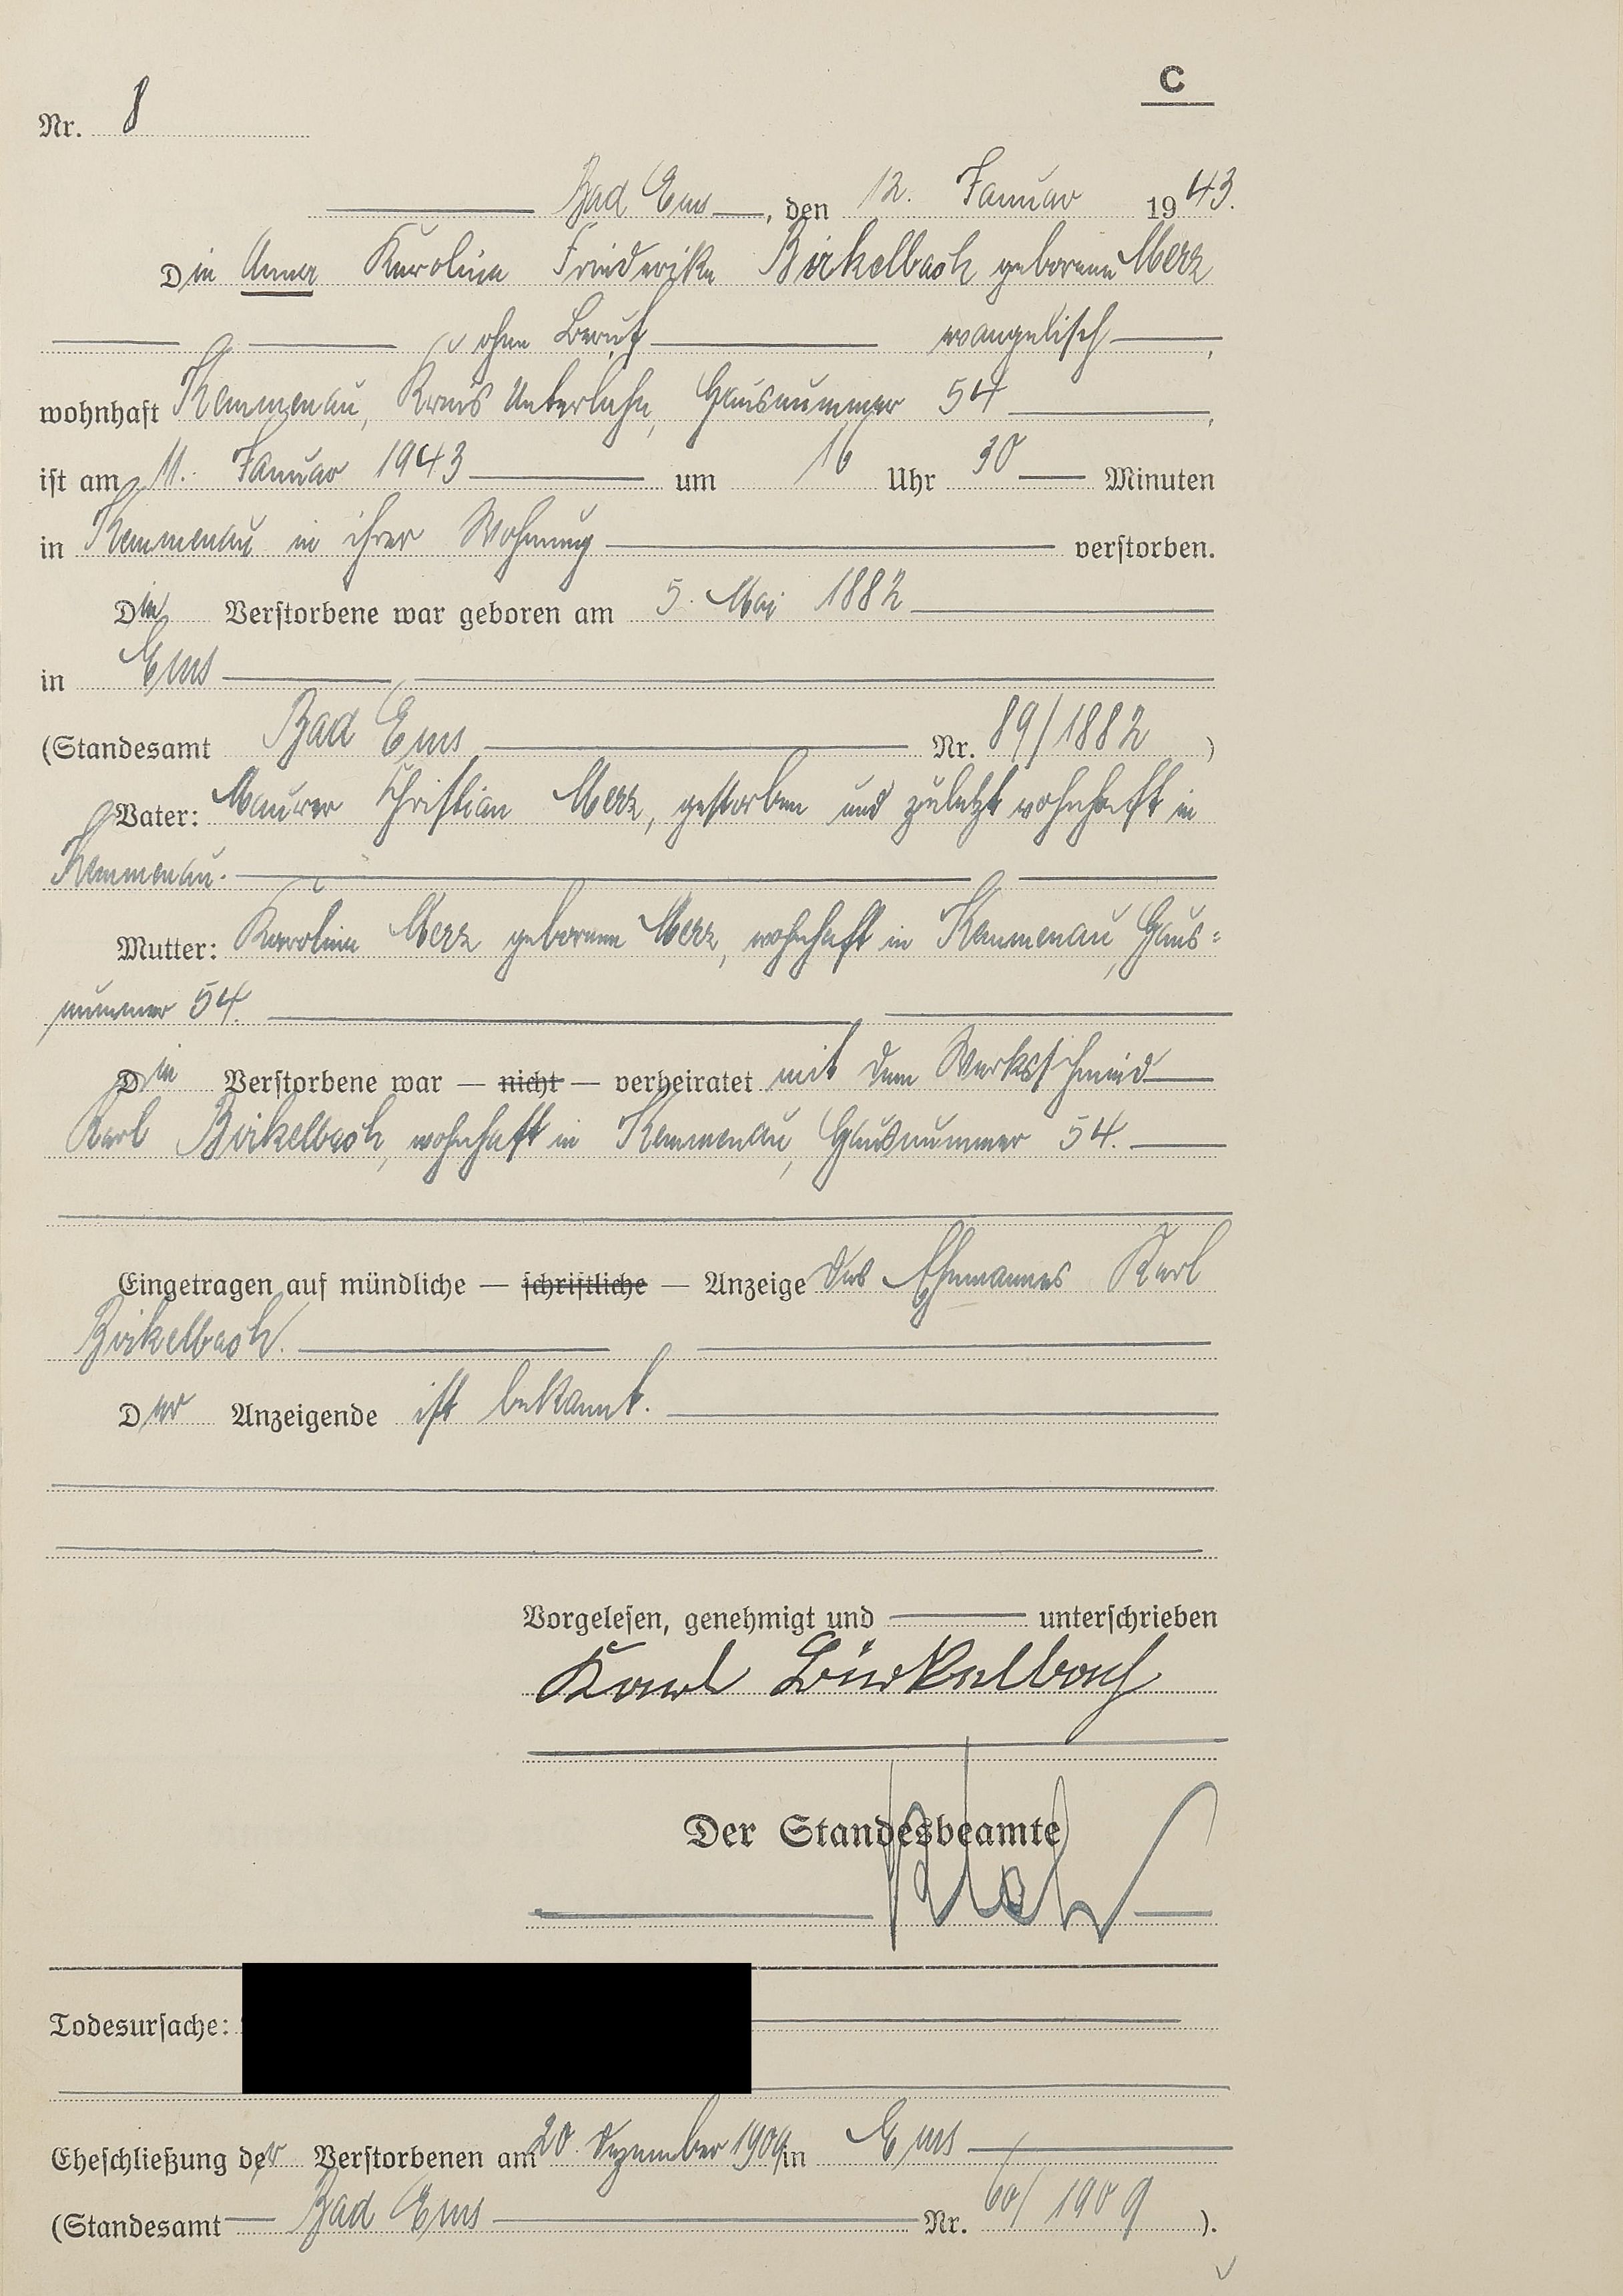 C
Nr. 8
Bad Ems, den 12. Januar 1943.
Die Anna Karoline Friederike Birkelbach geborene Merz
ohne Beruf evangelisch,
wohnhaft Kemmenau, Kreis Unterlahn, Hausnummer 54,
ist am 11. Januar 1943 um 16 Uhr 30 Minuten
in Kemmenau in ihrer Wohnung verstorben.
Die Verstorbene war geboren am 5. Mai 1882
in Ems
(Standesamt Bad Ems Nr. 89/1882)
Vater: Maurer Christian Merz, gestorben und zuletzt wohnhaft in
Kemmenau.
Mutter: Karoline Merz geborene Merz, wohnhaft in Kemmenau, Haus=
nummer 54.
Die Verstorbene war — nicht — verheiratet mit dem Werksschmied
Karl Birkelbach, wohnhaft in Kemmenau, Hausnummer 54.
Eingetragen auf mündliche — schriftliche — Anzeige des Ehemannes Karl
Birkelbach.
Der Anzeigende ist bekannt.
Vorgelesen, genehmigt und unterschrieben
Karl Birkelbach
Der Standesbeamte
Todesursache:
Eheschließung der Verstorbenen am 20. Dezember 1909 in Ems
(Standesamt Bad Ems Nr. 60/1909).